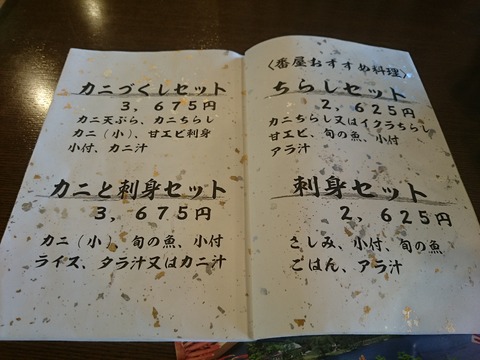 カニづくしセット
3,675円
カニ天ぷら、カニちらし
カニ(小)、甘エビ刺身
小付、カニ汁
カニと刺身セット
3,675円
カニ(小)、旬の魚、小付
ライス、タラ汁又はカニ汁
〈番屋おすすめ料理〉
ちらしセット
2,625円
カニちらし又はイクラちらし
甘エビ、旬の魚、小付
アラ汁
刺身セット
2,625円
さしみ、小付、旬の魚
ごはん、アラ汁